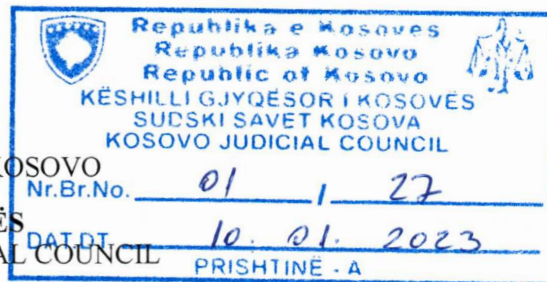 Republika e Kosovës
Republika Kosovo
Republic of Kosovo
KËSHILLI GJYQËSOR I KOSOVËS
SUDSKI SAVET KOSOVA
KOSOVO JUDICIAL COUNCIL
KOSOVO
Nr.Br.No. 01 / 27
ËS
DAT.DT. 10. 01. 2023
AL COUNCIL
PRISHTINË - A